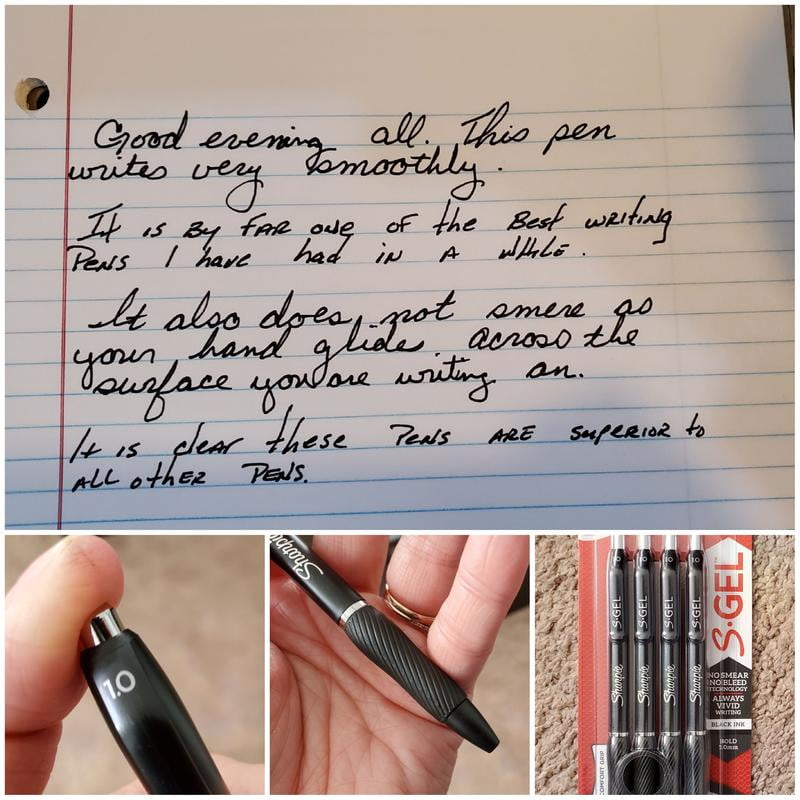 Good evening all. This pen
writes very smoothly.
It is By FAR one of the Best writing
Pens I have had in A while.
It also does not smere as
your hand glide across the
surface you are writing on.
It is clear these Pens ARE superior to
ALL other Pens.
1.0
Sharpie
1.0 1.0
S·GEL S·GEL S·GEL S·GEL
Sharpie Sharpie Sharpie Sharpie
S·GEL
NO SMEAR
NO BLEED
TECHNOLOGY
ALWAYS
VIVID
WRITING
BLACK INK
BOLD
1.0mm
COMFORT GRIP